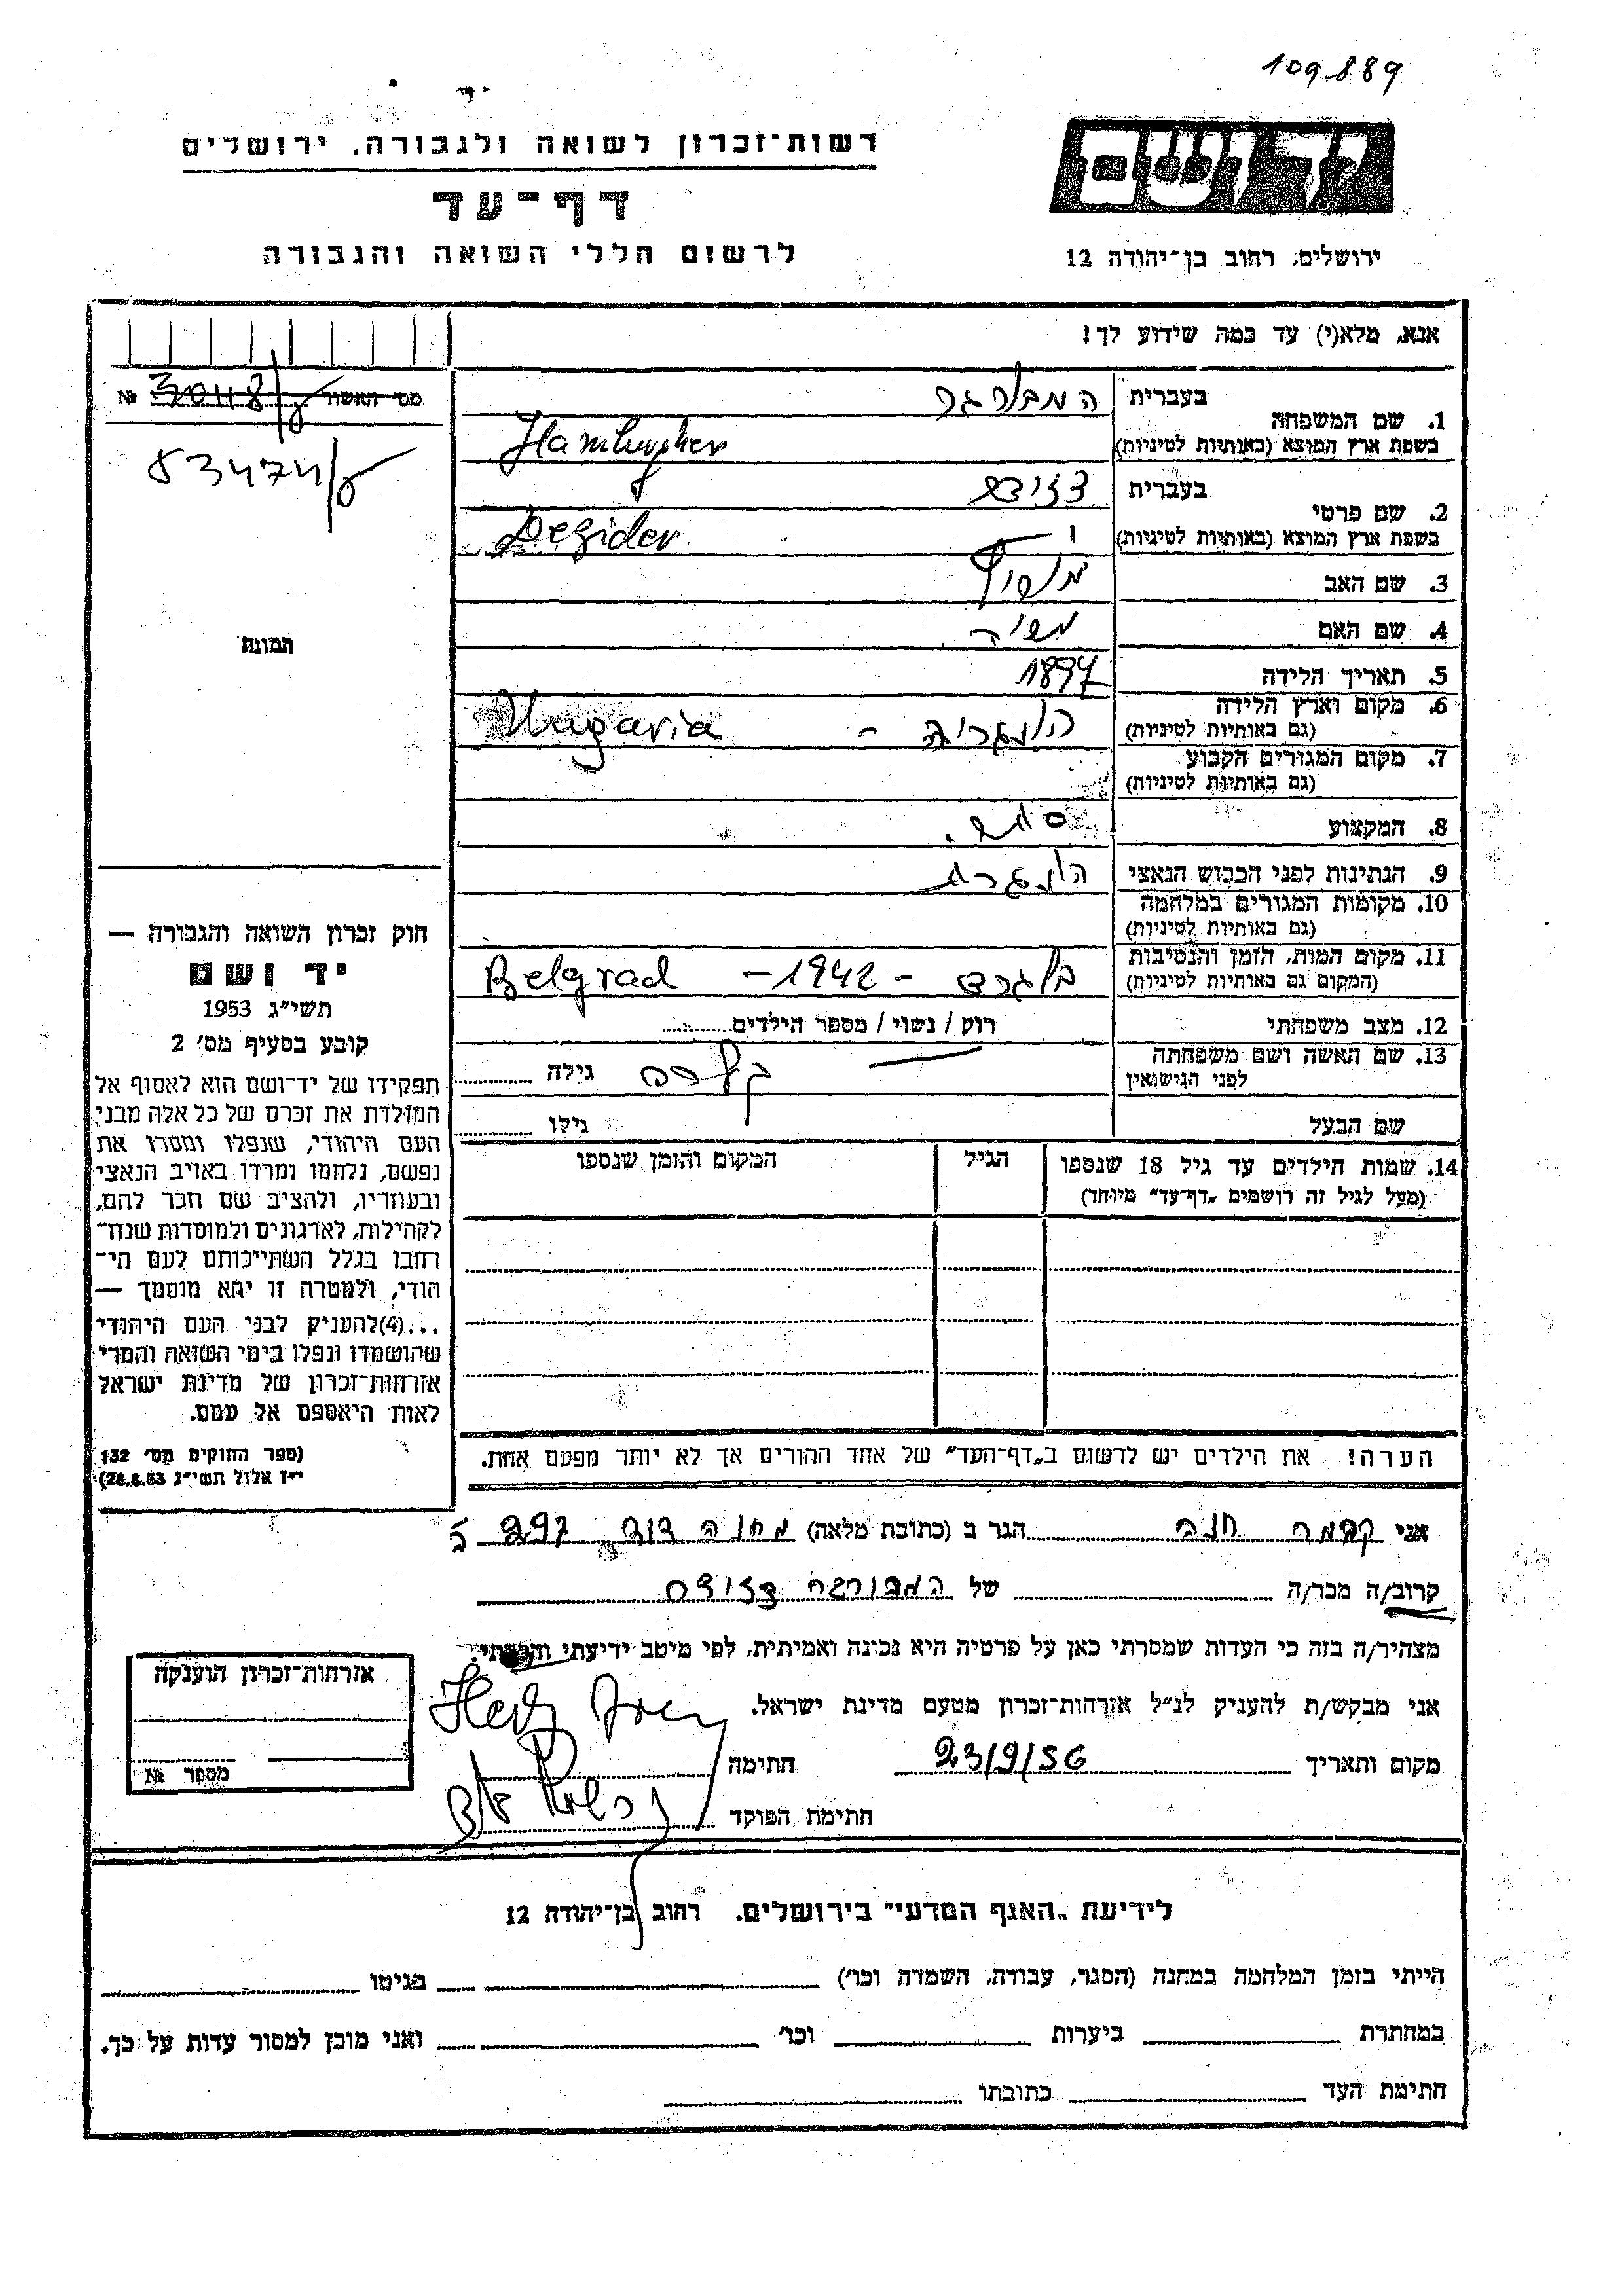 109889
רשות־זכרון לשואה ולגבורה, ירושלים
דף־עד
לרשום חללי השואה והגבורה
יד ושם
ירושלים, רחוב בן־יהודה 12
אנא, מלא(י) עד כמה שידוע לך!
מס׳ האשור № 30118
83474
תמונה
1. שם המשפחה
בעברית המבורגר
בשפת ארץ המוצא (באותיות לטיניות) Hamburgher
2. שם פרטי
בעברית
בשפת ארץ המוצא (באותיות לטיניות) Dezider
3. שם האב
4. שם האם
5. תאריך הלידה 1897
6. מקום וארץ הלידה
(גם באותיות לטיניות) הונגריה - Ungaria
7. מקום המגורים הקבוע
(גם באותיות לטיניות)
8. המקצוע סוחר.
9. הנתינות לפני הכבוש הנאצי
10. מקומות המגורים במלחמה
(גם באותיות לטיניות)
11. מקום המות, הזמן והנסיבות
(המקום גם באותיות לטיניות) בלגרד - 1942 - Belgrad
12. מצב משפחתי רוק / נשוי / מספר הילדים
13. שם האשה ושם משפחתה
לפני הנישואין
גילה
שם הבעל
גילו
14. שמות הילדים עד גיל 18 שנספו
(מעל לגיל זה רושמים „דף־עד״ מיוחד)
הגיל
המקום והזמן שנספו
הערה! את הילדים יש לרשום ב„דף־העד״ של אחד ההורים אך לא יותר מפעם אחת.
חוק זכרון השואה והגבורה —
יד ושם
תשי״ג 1953
קובע בסעיף מס׳ 2
תפקידו של יד־ושם הוא לאסוף אל
המולדת את זכרם של כל אלה מבני
העם היהודי, שנפלו ומסרו את
נפשם, נלחמו ומרדו באויב הנאצי
ובעוזריו, ולהציב שם וזכר להם,
לקהילות, לארגונים ולמוסדות שנח־
רבו בגלל השתייכותם לעם הי־
הודי, ולמטרה זו יהא מוסמך —
...(4)להעניק לבני העם היהודי
שהושמדו ונפלו בימי השואה והמרי
אזרחות־זכרון של מדינת ישראל
לאות היאספם אל עמם.
(ספר החוקים מס׳ 132
י״ז אלול תשי״ג 28.8.53)
אני חנה הגר ב (כתובת מלאה) מחנה דוד 297
קרוב/ה מכר/ה של
מצהיר/ה בזה כי העדות שמסרתי כאן על פרטיה היא נכונה ואמיתית, לפי מיטב ידיעתי והכרתי.
אני מבקש/ת להעניק לנ״ל אזרחות־זכרון מטעם מדינת ישראל.
מקום ותאריך 23/9/56 חתימה
חתימת הפוקד
אזרחות־זכרון הוענקה
מספר №
לידיעת „האגף המדעי״ בירושלים. רחוב בן־יהודה 12
הייתי בזמן המלחמה במחנה (הסגר, עבודה, השמדה וכו׳) בגיטו
במחתרת ביערות וכו׳ ואני מוכן למסור עדות על כך.
חתימת העד כתובתו